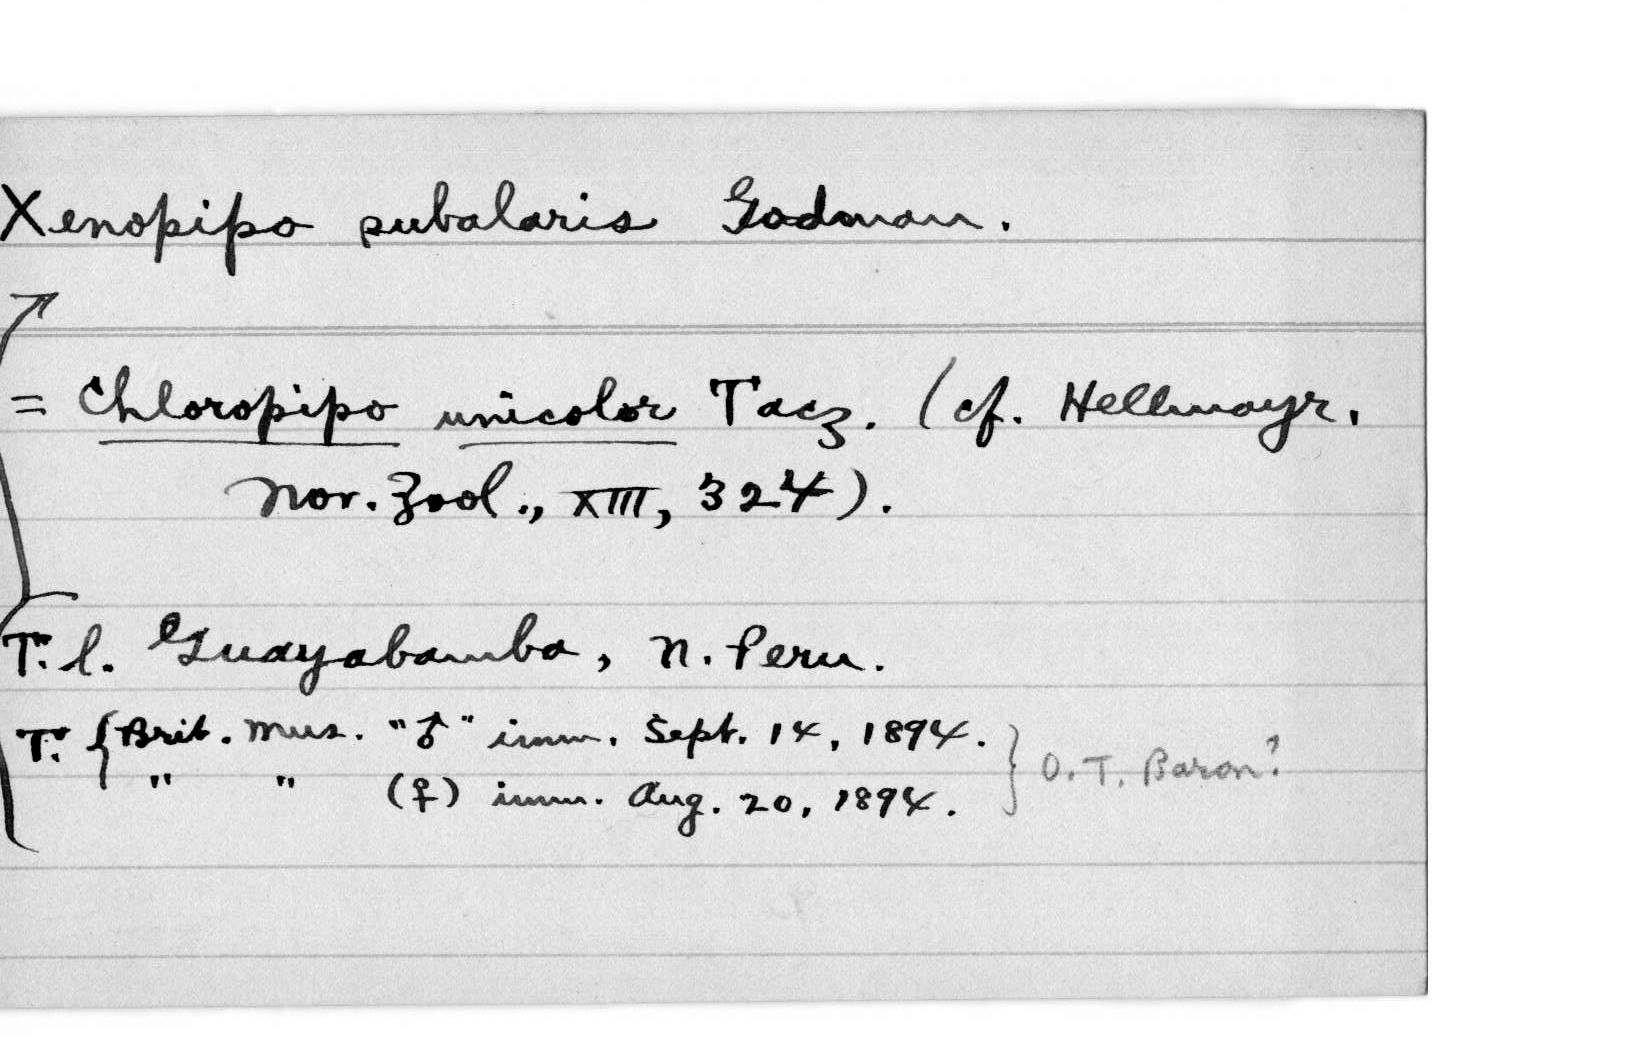 Xenopipo subalaris Godman.
= Chloropipo unicolor Tacz. (cf. Hellmayr,
Nov. Zool., XIII, 324).
T. l. Guayabamba, N. Peru.
T. { Brit. Mus. "♂" imm. Sept. 14, 1894. } O. T. Baron?
" " (♀) imm. Aug. 20, 1894.